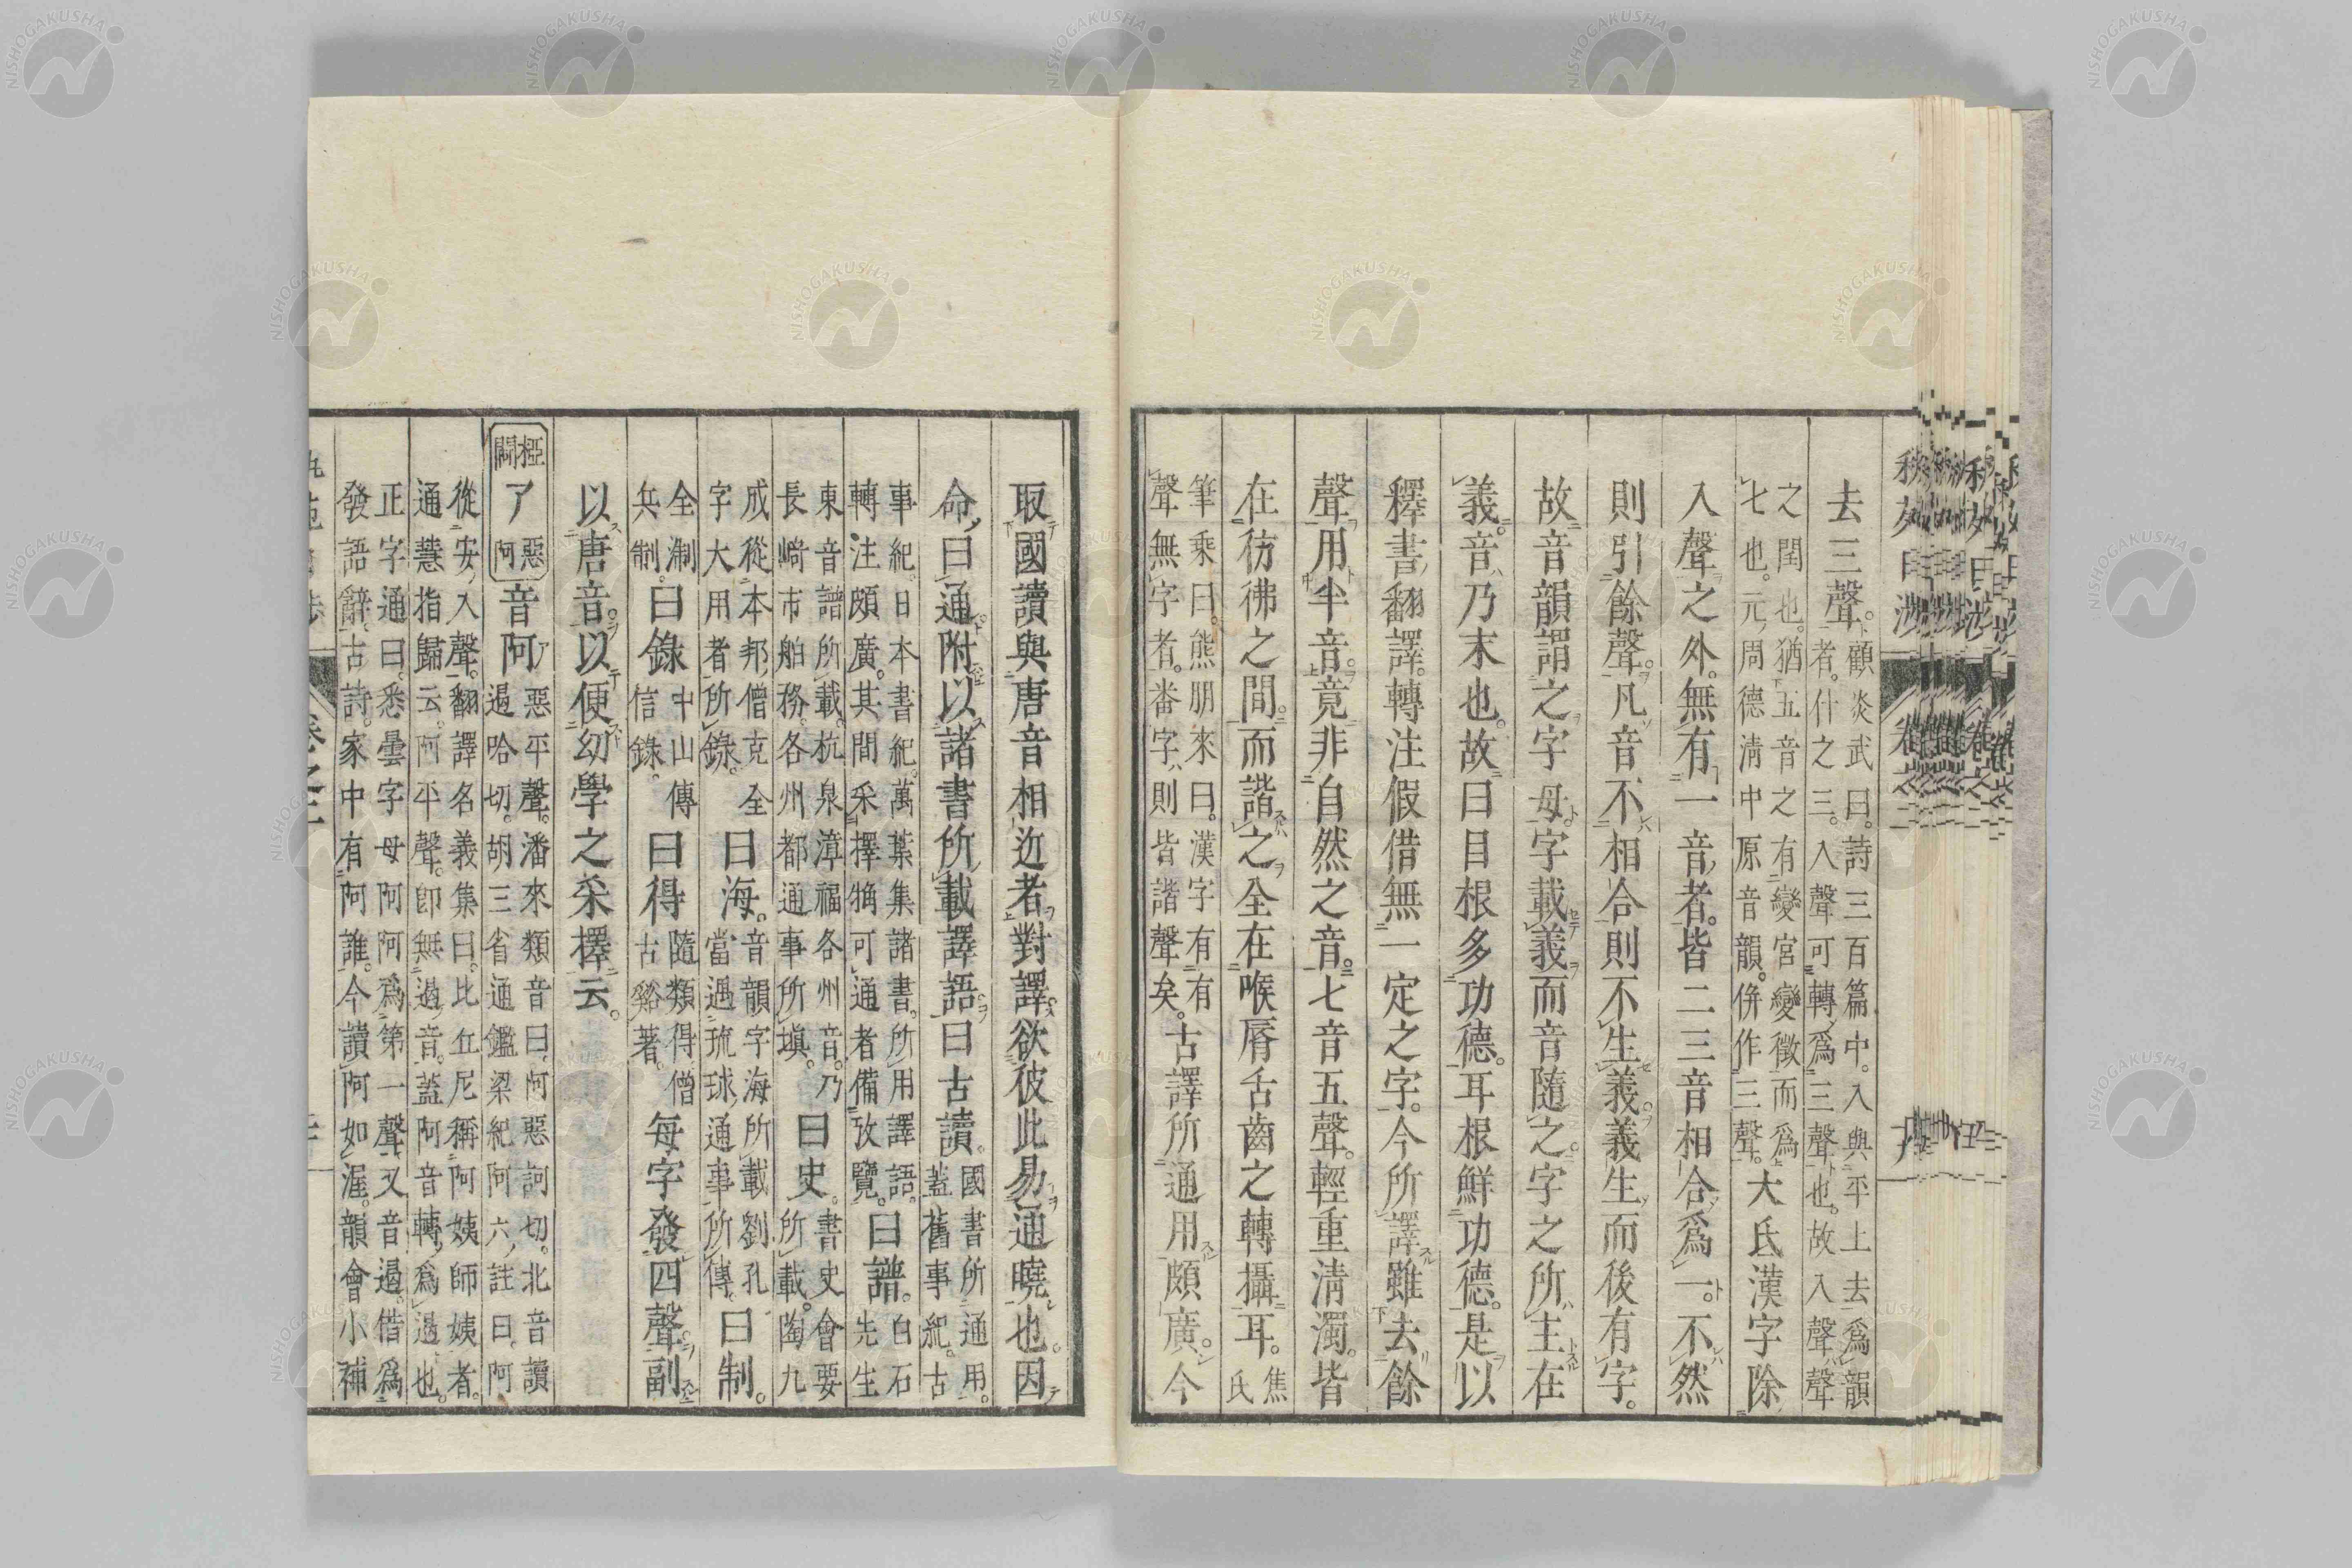 去三聲。顧炎武曰。詩三百篇中。入與平上去爲韻
者。什之三。入聲可轉爲三聲也。故入聲聲
之閏也。猶五音之有變宮變徵而爲
七也。元周德淸中原音韻。併作三聲。大氐漢字除
入聲之外。無有一音者。皆二三音相合爲一。不然
則引餘聲。凡音不相合則不生義。義生而後有字。
故音韻謂之字母。字載義而音隨之。字之所主在
義。音乃末也。故曰目根多功德。耳根鮮功德。是以
釋書翻譯。轉注假借無一定之字。今所譯雖去餘
聲用半音。竟非自然之音。七音五聲。輕重淸濁。皆
在彷彿之間。而諧之全在喉脣舌齒之轉攝耳。焦氏
筆乘曰。熊朋來曰。漢字有有
聲無字者。畨字則皆諧聲矣。古譯所通用頗廣。今
取國讀與唐音相近者對譯。欲彼此易通曉也。因
命曰通。附以諸書所載譯語。曰古讀。國書所通用。
蓋舊事紀。古
事紀。日本書紀。萬葉集諸書。所用譯語。
轉注頗廣。其間采擇物可通者備攷覽。曰譜。白石先生
東音譜所載。杭泉漳福各州音。乃
長崎市舶務。各州都通事所塡。曰史。書史會要
所載。陶九
成從本邦僧克全
字大用者所錄。曰海。音韻字海所載。劉孔
當遇琉球通事所傳。曰制。
全淛
兵制。曰錄。中山傳
信錄。曰得。隨類得僧
古谿著。每字發四聲副
以唐音。以便幼學之采擇云。
椏閜 了 惡阿 音阿 惡平聲。潘來類音曰。阿惡訶切。北音讀
遏哈切。胡三省通鑑梁紀阿六註曰。阿
從安入聲。翻譯名義集曰。比丘尼稱阿姨師姨者。
通慧指歸云。阿平聲。卽無遏音。蓋阿音轉爲遏也。
正字通曰。悉曇字母阿阿爲第一聲。又音遏。借爲
發語辭。古詩。家中有阿誰。今讀阿如渥。韻會小補
卷之